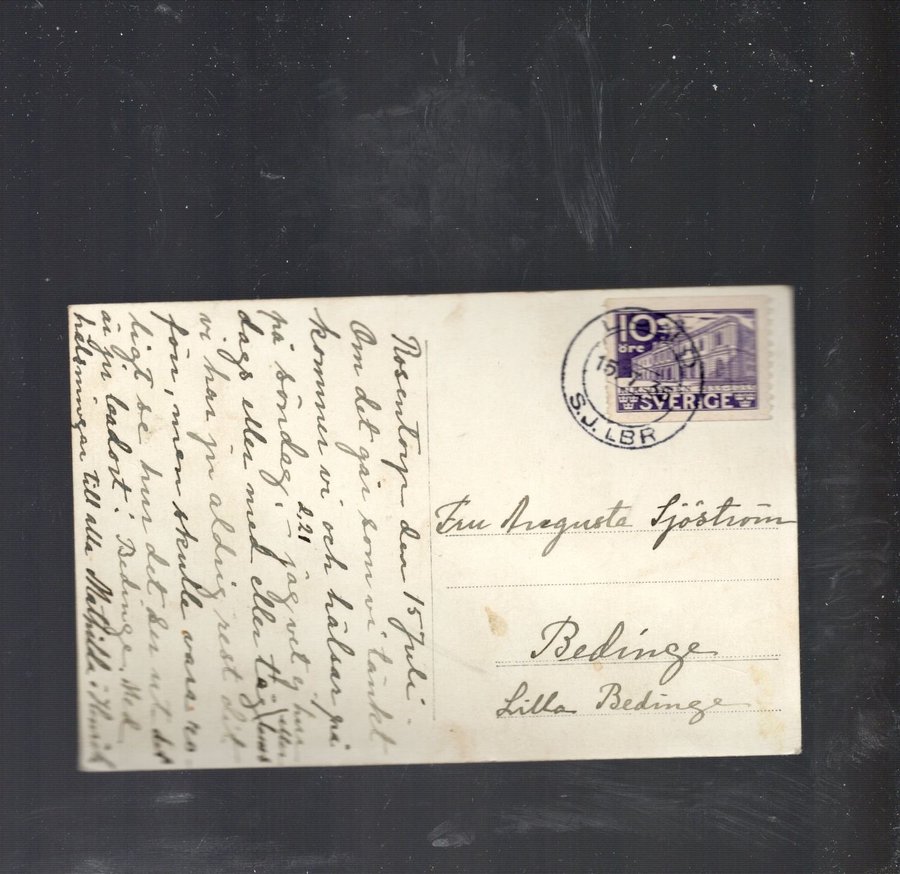 Rosentorp den 15 Juli
Om det går som vi tänkt
kommer vi och hälsar på
på söndag, 221 jag vet ej hur
dags eller med eller tåg eller buss
vi har ju aldrig rest dit
förr, men skulle vara ro
ligt se hur det ser ut det
är ju badort i Bedinge. Med
hälsningar till alla
10
öre
SVERIGE
15
S.J. LBR
Fru Augusta Sjöström
Bedinge
Lilla Bedinge